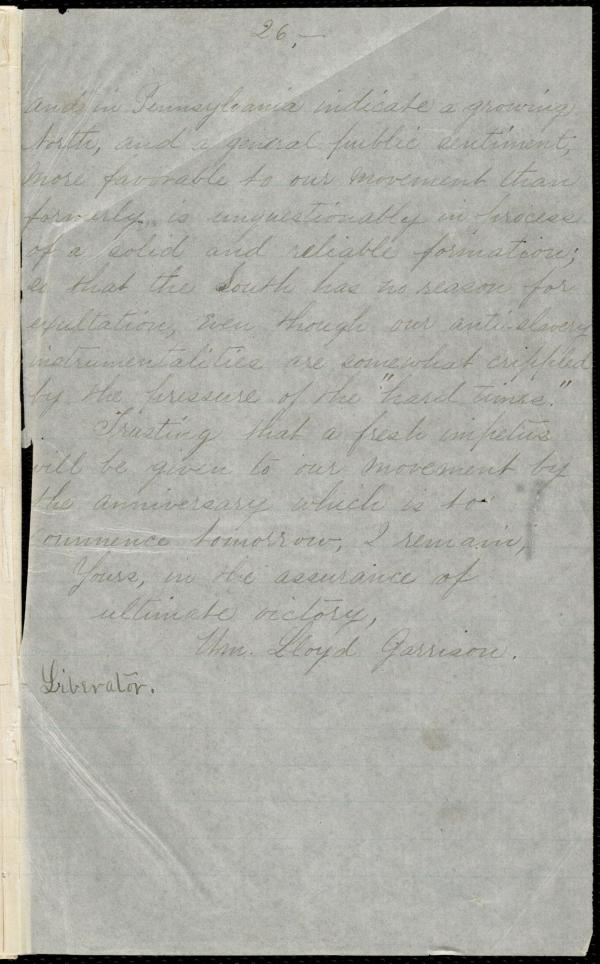 26,—
and in Pennsylvania indicate a growing
North, and a general public sentiment,
more favorable to our movement than
formerly, is unquestionably in process
of a solid and reliable formation;
so that the South has no reason for
exultation, even though our anti-slavery
instrumentalities are somewhat crippled
by the pressure of the "hard times."
Trusting that a fresh impetus
will be given to our movement by
the anniversary which is to
commence tomorrow, I remain,
Yours, in the assurance of
ultimate victory,
Wm. Lloyd Garrison.
Liberator.